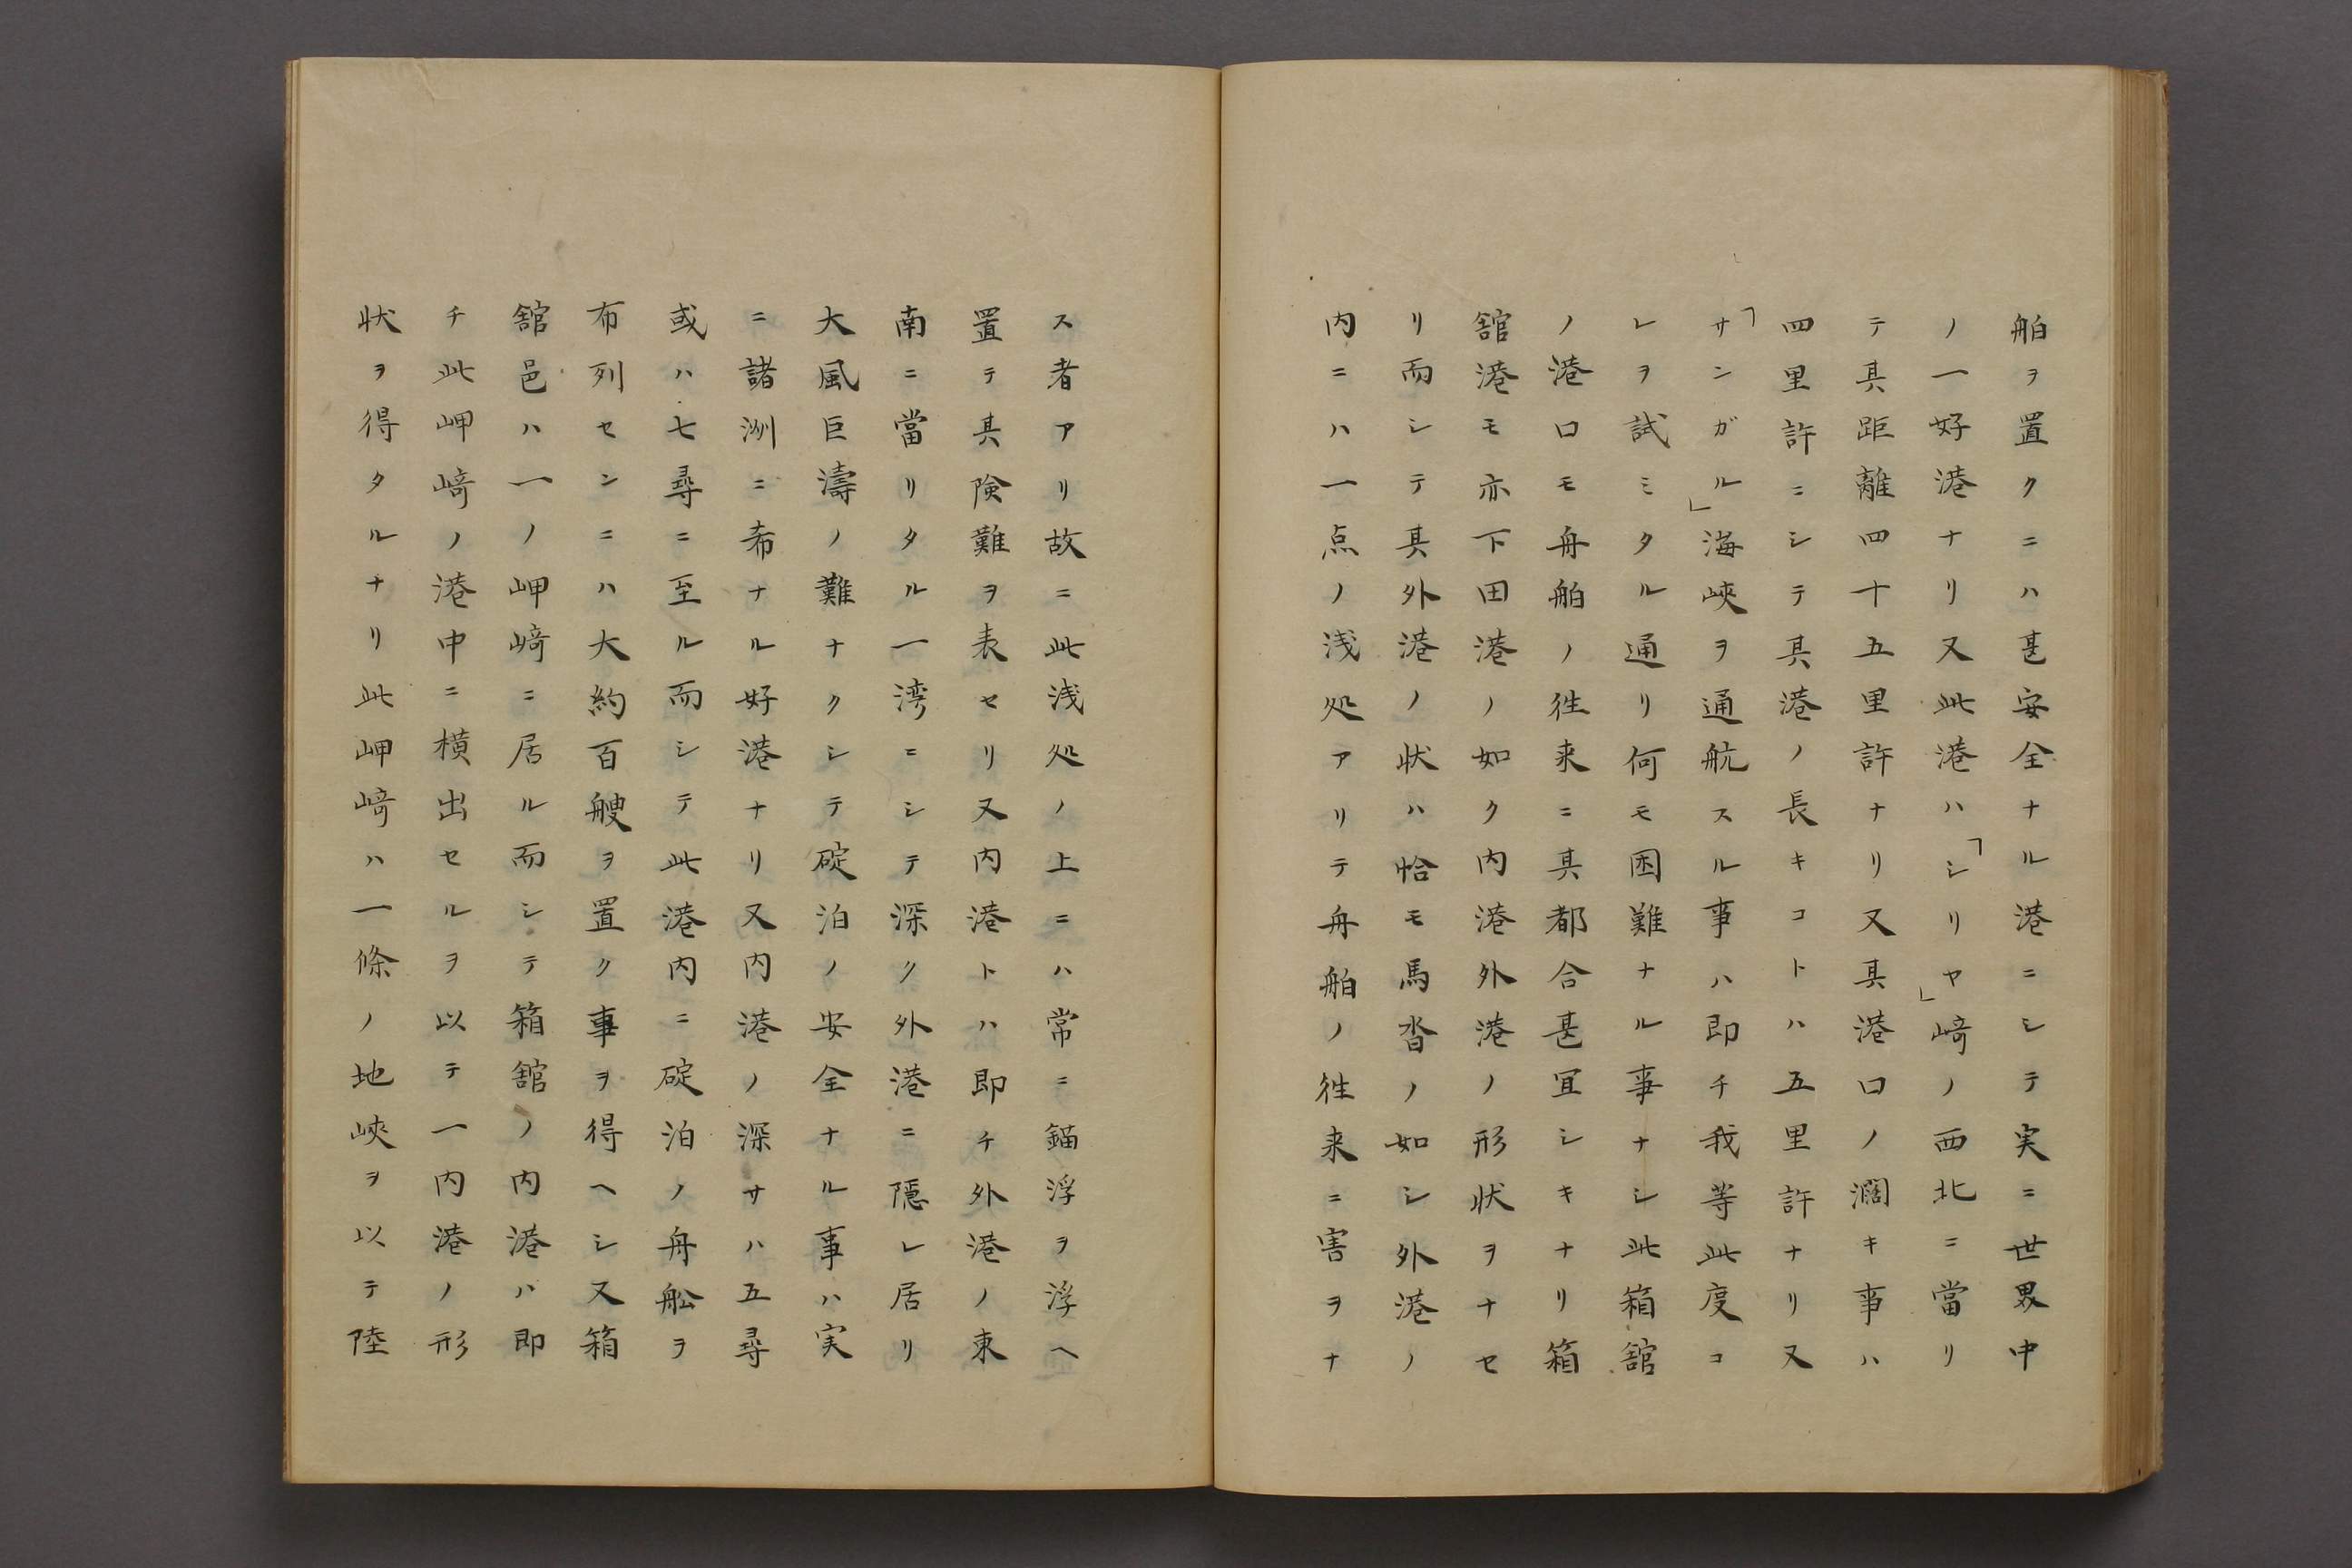 舶ヲ置クニハ甚安全ナル港ニシテ実ニ世界中
ノ一好港ナリ又此港ハ「シリヤ」﨑ノ西北ニ當リ
テ其距離四十五里許ナリ又其港口ノ濶キ事ハ
四里許ニシテ其港ノ長キコトハ五里許ナリ又
「サンガル」海峡ヲ通航スル事ハ即チ我等此度コ
レヲ試ミタル通リ何モ困難ナル事ナシ此箱舘
ノ港口モ舟舶ノ徃来ニ其都合甚冝シキナリ箱
舘港モ亦下田港ノ如ク内港外港ノ形状ヲナセ
リ而シテ其外港ノ状ハ恰モ馬沓ノ如シ外港ノ
内ニハ一点ノ浅処アリテ舟舶ノ徃来ニ害ヲナ
ス者アリ故ニ此浅処ノ上ニハ常ニ錨浮ヲ浮ヘ
置テ其険難ヲ表セリ又内港トハ即チ外港ノ東
南ニ當リタル一湾ニシテ深ク外港ニ隠レ居リ
大風巨濤ノ難ナクシテ碇泊ノ安全ナル事ハ実
ニ諸洲ニ希ナル好港ナリ又内港ノ深サハ五尋
或ハ七尋ニ至ル而シテ此港内ニ碇泊ノ舟舩ヲ
布列センニハ大約百艘ヲ置ク事ヲ得ヘシ又箱
舘邑ハ一ノ岬﨑ニ居ル而シテ箱舘ノ内港ハ即
チ此岬﨑ノ港中ニ横出セルヲ以テ一内港ノ形
状ヲ得タルナリ此岬﨑ハ一條ノ地峡ヲ以テ陸